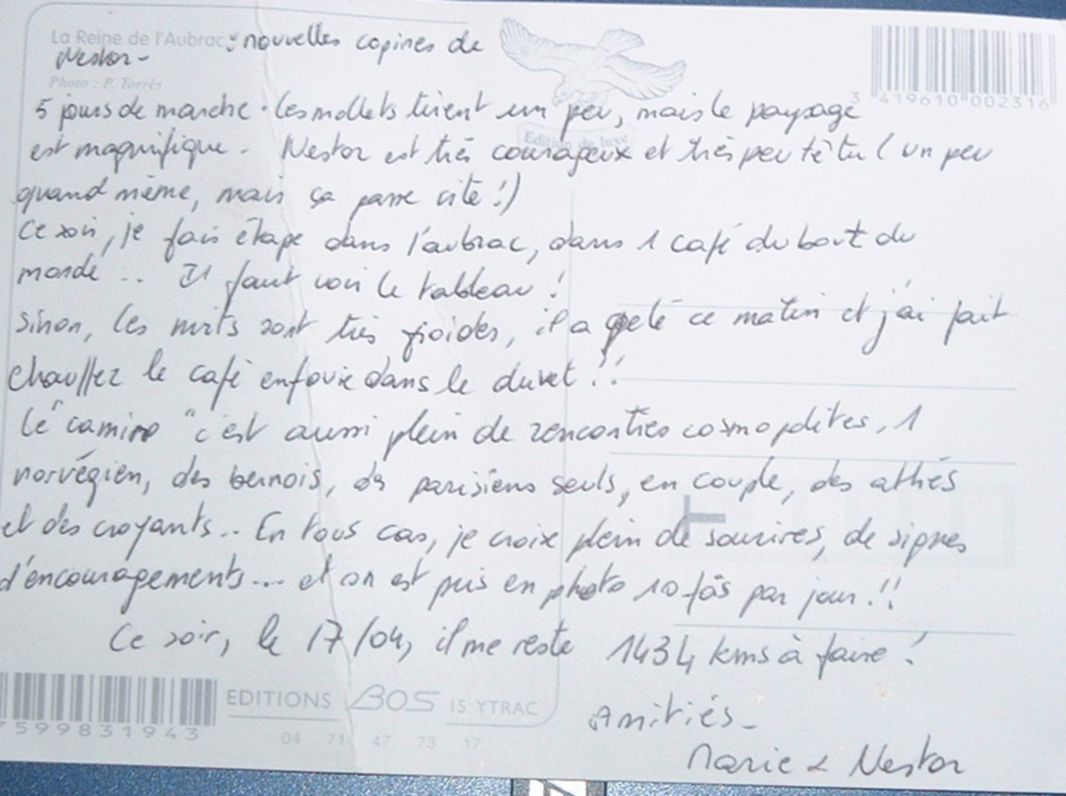 La Reine de l'Aubrac : nouvelles copines de
Nestor -
Photo : P. Torrès
3 419610 002316
Edition de luxe
5 jours de marche. Les mollets tirent un peu, mais le paysage
est magnifique. Nestor est très courageux et très peu têtu (un peu
quand même, mais ça passe vite !)
Ce soir, je fais étape dans l'aubrac, dans 1 café du bout du
monde .. Il faut voir le tableau !
Sinon, les nuits sont très froides, il a gelé ce matin et j'ai fait
chauffez le café enfouie dans le duvet !!
Le "camino" c'est aussi plein de rencontres cosmopolites, 1
norvégien, des bernois, des parisiens seuls, en couple, des athés
et des croyants.. En tous cas, je croise plein de sourires, de signes
d'encouragements... et on est pris en photo 10 fois par jour !!
Ce soir, le 17/04, il me reste 1434 kms à faire !
Amitiés -
Marie & Nestor
EDITIONS BOS 15 YTRAC
04 71 47 73 17
7599831943